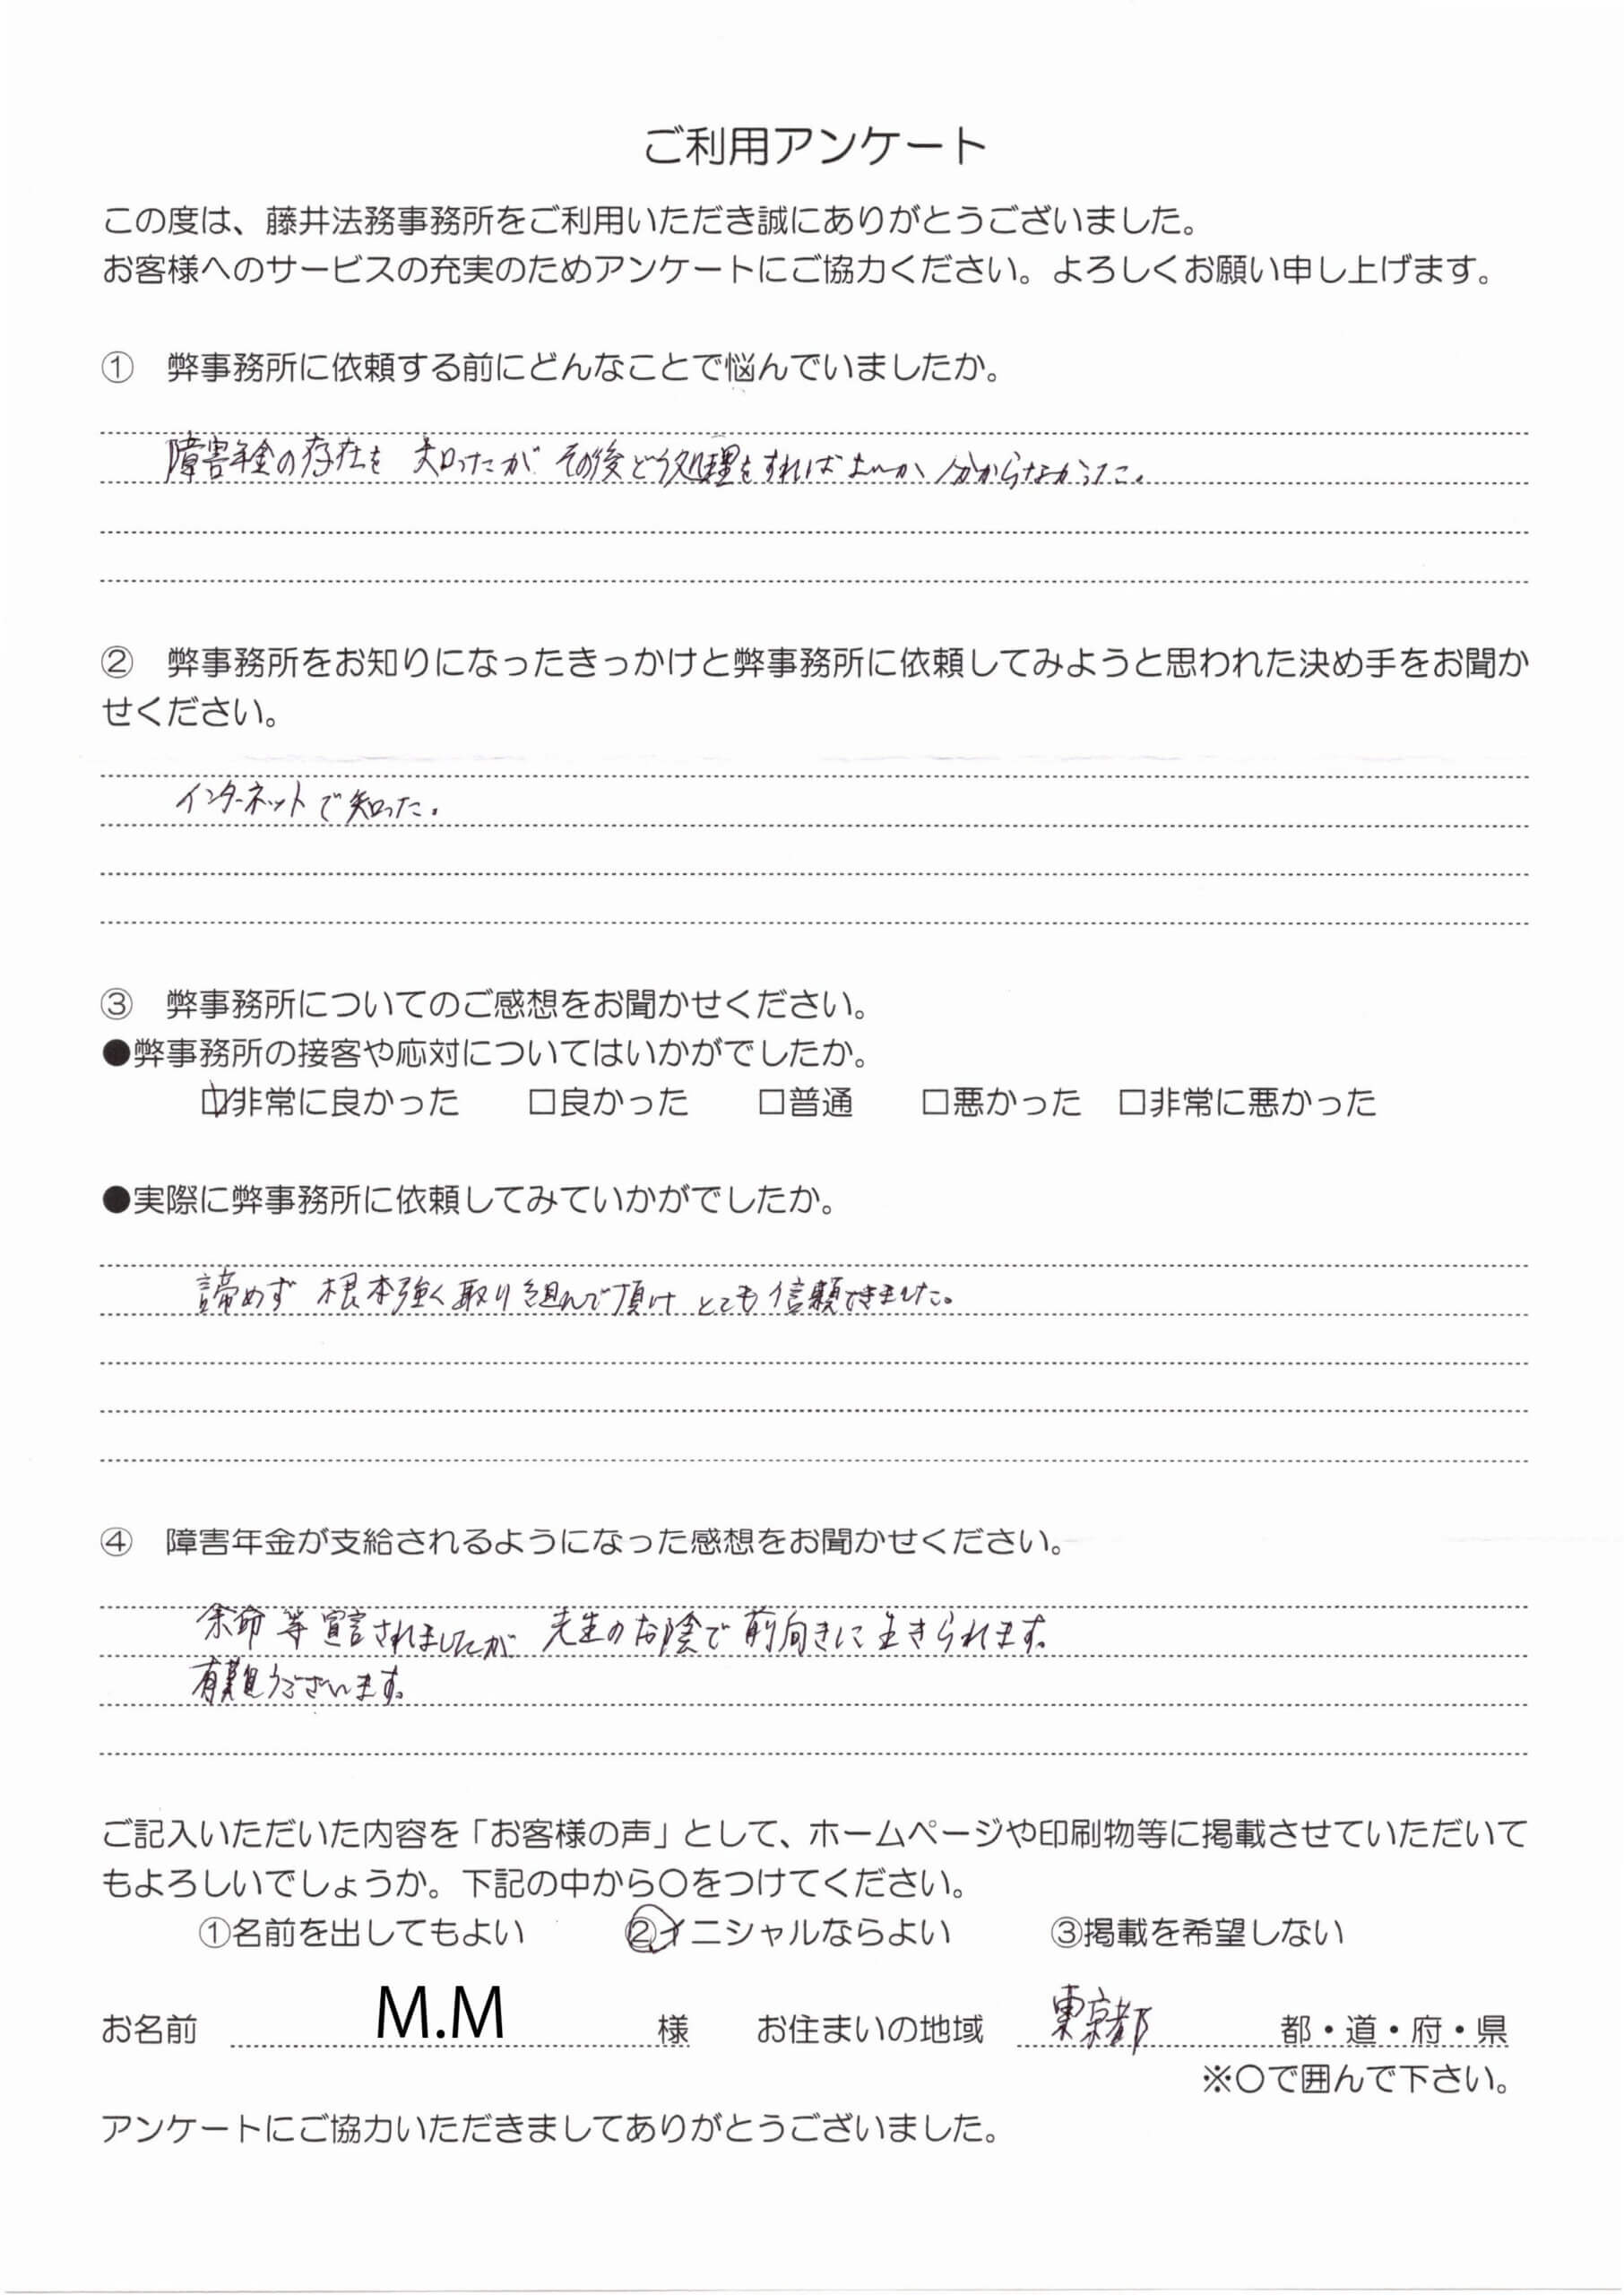 ご利用アンケート
この度は、藤井法務事務所をご利用いただき誠にありがとうございました。
お客様へのサービスの充実のためアンケートにご協力ください。よろしくお願い申し上げます。
① 弊事務所に依頼する前にどんなことで悩んでいましたか。
障害年金の存在を 知ったが その後どう処理をすればよいか 分からなかった。
② 弊事務所をお知りになったきっかけと弊事務所に依頼してみようと思われた決め手をお聞か
せください。
インターネットで知った。
③ 弊事務所についてのご感想をお聞かせください。
●弊事務所の接客や応対についてはいかがでしたか。
☑非常に良かった □良かった □普通 □悪かった □非常に悪かった
●実際に弊事務所に依頼してみていかがでしたか。
諦めず 根本強く取り組んで頂け とても信頼できました。
④ 障害年金が支給されるようになった感想をお聞かせください。
余命等宣言されましたが 先生のお陰で前向きに生きられます。
有難うございます。
ご記入いただいた内容を「お客様の声」として、ホームページや印刷物等に掲載させていただいて
もよろしいでしょうか。下記の中から○をつけてください。
①名前を出してもよい ②イニシャルならよい ③掲載を希望しない
お名前 M.M 様 お住まいの地域 東京都 都・道・府・県
※○で囲んで下さい。
アンケートにご協力いただきましてありがとうございました。